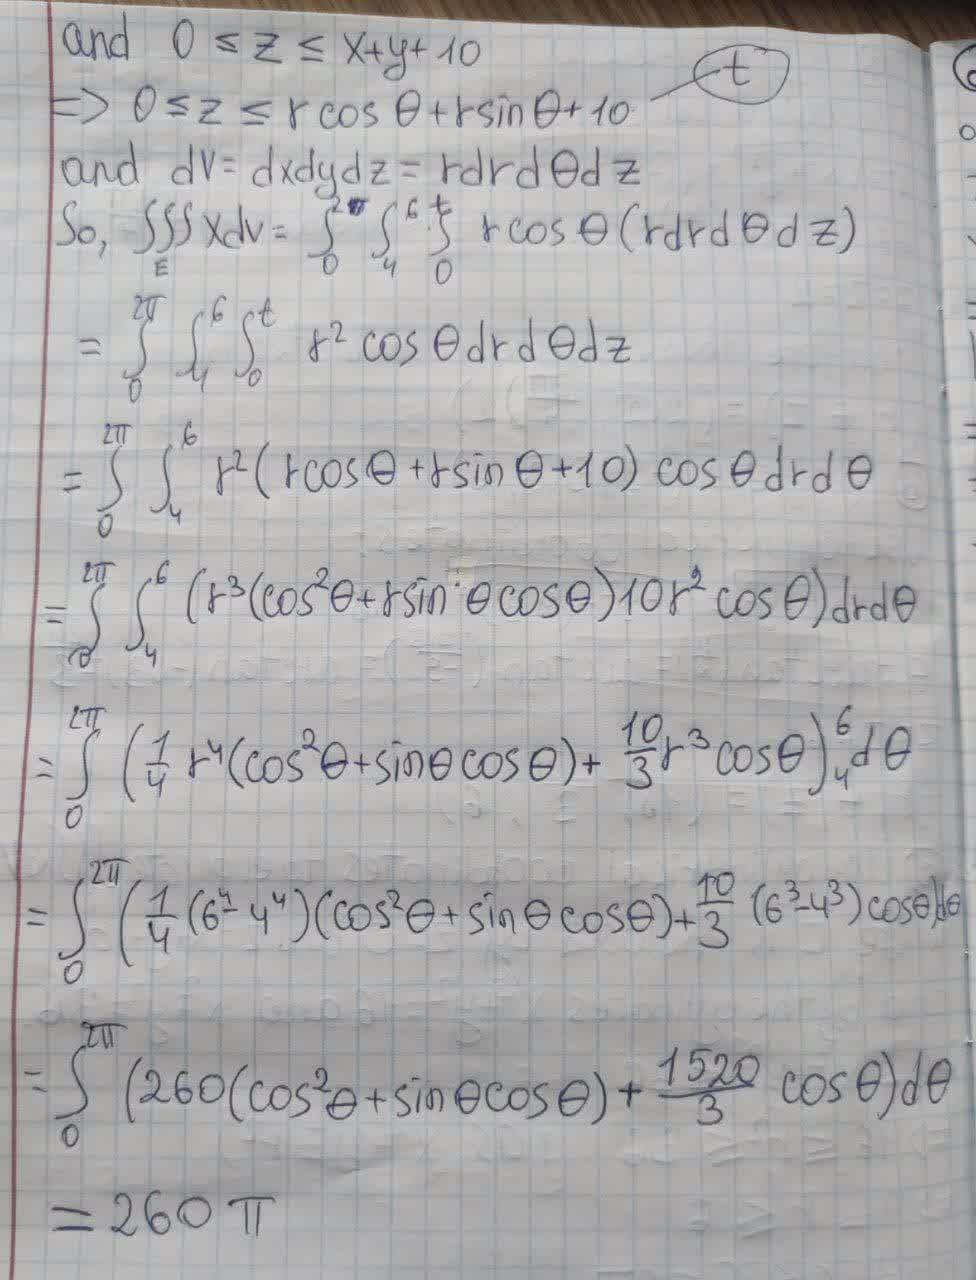 and 0 ≤ z ≤ x+y+10
=> 0 ≤ z ≤ r cos θ + r sin θ + 10 — t
and dv = dxdydz = r dr dθ dz
So, ∫∫∫_E x dv = ∫_0^{2π} ∫_4^6 ∫_0^t r cos θ (r dr dθ dz)
= ∫_0^{2π} ∫_4^6 ∫_0^t r² cos θ dr dθ dz
= ∫_0^{2π} ∫_4^6 r² (r cos θ + r sin θ + 10) cos θ dr dθ
= ∫_0^{2π} ∫_4^6 (r³ (cos² θ + r sin θ cos θ) 10r² cos θ) dr dθ
= ∫_0^{2π} (1/4 r⁴ (cos² θ + sin θ cos θ) + 10/3 r³ cos θ)_4^6 dθ
= ∫_0^{2π} (1/4 (6⁴ - 4⁴)(cos² θ + sin θ cos θ) + 10/3 (6³ - 4³) cos θ) dθ
= ∫_0^{2π} (260 (cos² θ + sin θ cos θ) + 1520/3 cos θ) dθ
= 260 π